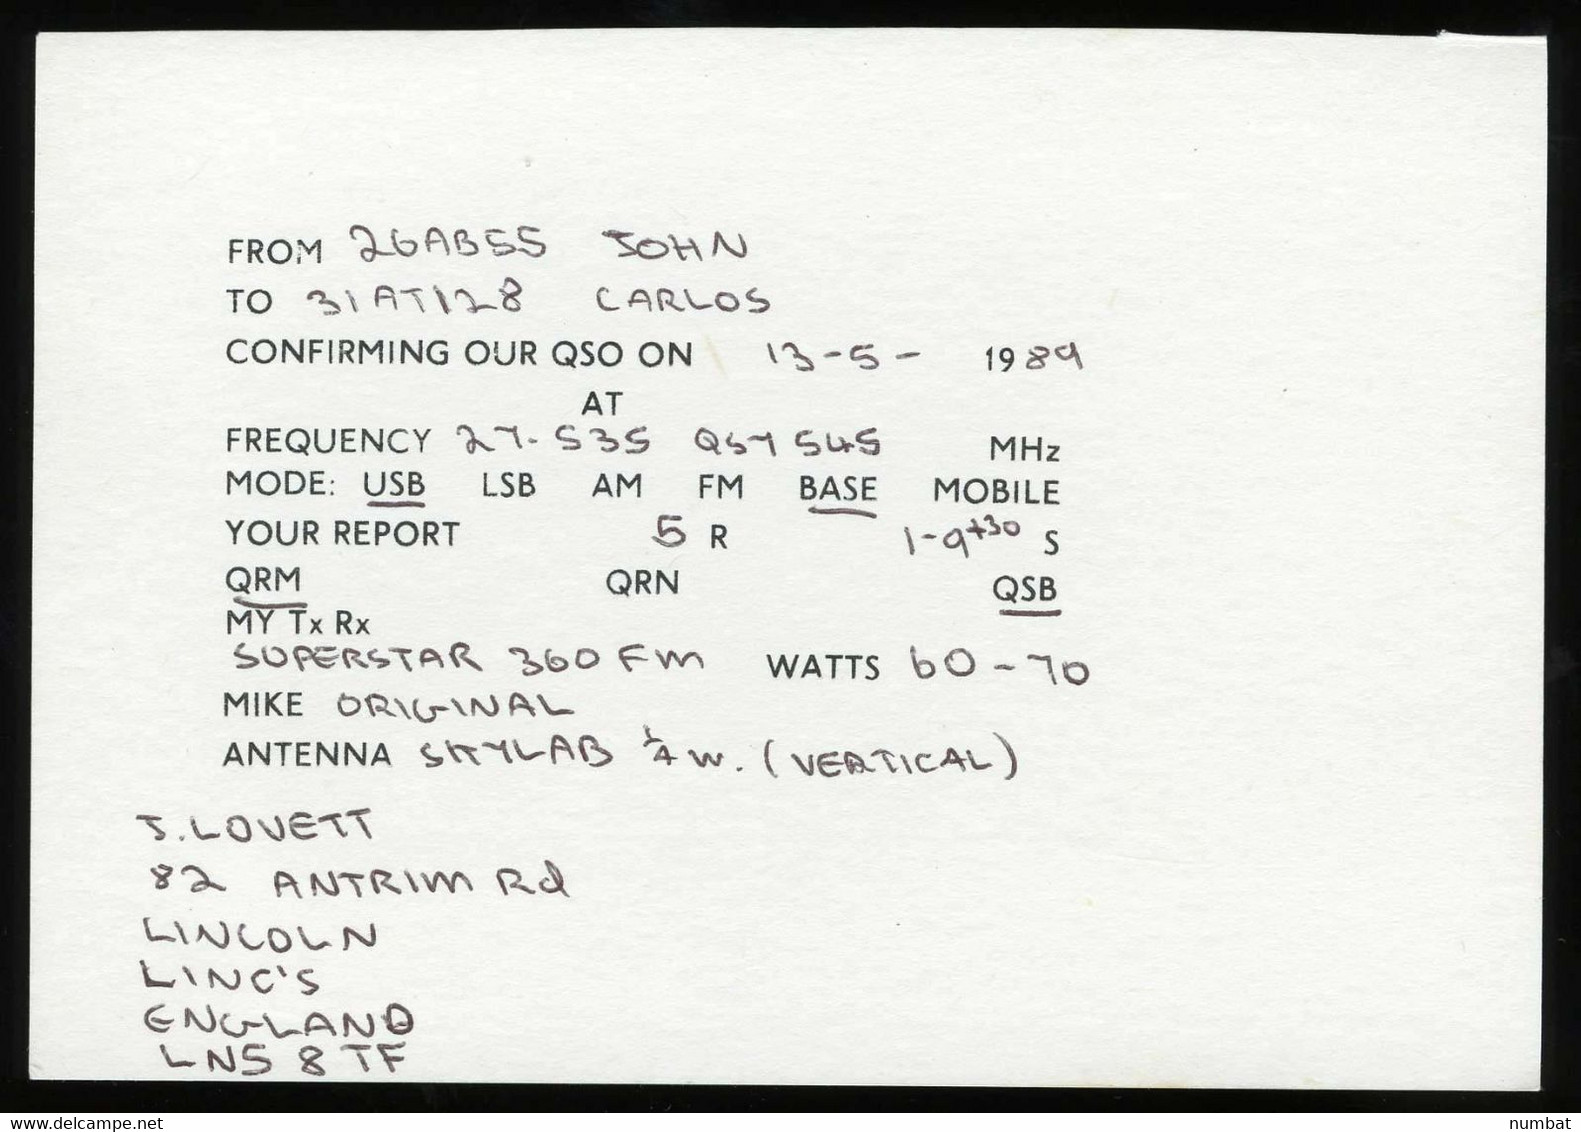 FROM 26AB55 JOHN
TO 31AT128 CARLOS
CONFIRMING OUR QSO ON 13-5- 1989
AT
FREQUENCY 27.535 QSY 545 MHz
MODE: USB LSB AM FM BASE MOBILE
YOUR REPORT 5 R 1-9+30 S
QRM QRN QSB
MY Tx Rx
SUPERSTAR 360 FM WATTS 60-70
MIKE ORIGINAL
ANTENNA SKYLAB ¼ W. (VERTICAL)
J. LOVETT
82 ANTRIM Rd
LINCOLN
LINC'S
ENGLAND
LN5 8TF
www.delcampe.net numbat